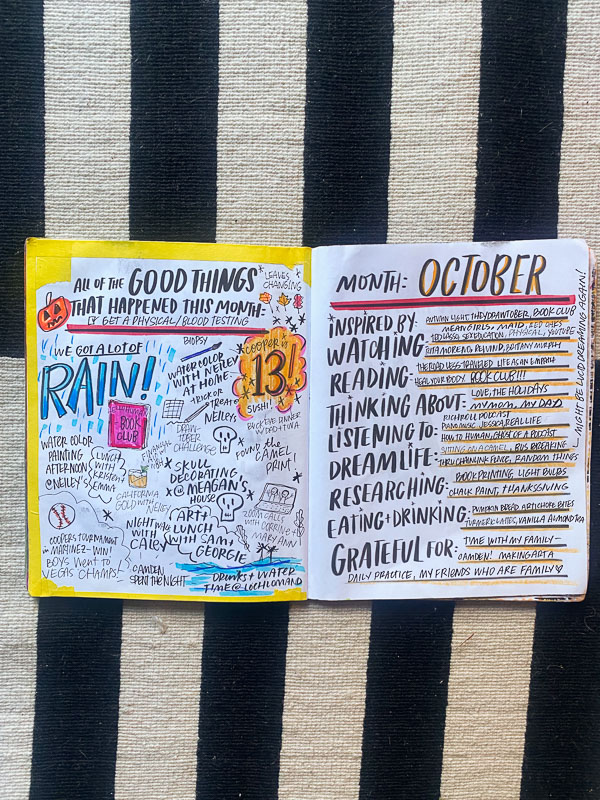 ALL OF THE GOOD THINGS
THAT HAPPENED THIS MONTH:
GET A PHYSICAL/BLOOD TESTING
LEAVES
CHANGING
WE GOT A LOT OF
RAIN!
BIOPSY
WATERCOLOR
WITH NEILEY
AT HOME
COOPER IS
13!
SUSHI
TRICK OR
TREAT @
NEILEYS
BOOK
CLUB
DRAW-
TOBER
CHALLENGE
DINNER
FOUND THE
CAMEL
PRINT!
WATER COLOR
PAINTING
AFTERNOON
@NEILEY'S
LUNCH
WITH
KRISTEN
EMMA
SKULL
DECORATING
@ MEAGAN'S
HOUSE
CALIFORNIA
GOLD WITH
ZOOM CALLS
WITH CORRINE +
MARY ANN
COOPERS TOURNAMENT
MARTINEZ-WIN!
BOYS WENT TO
VEGAS CHAMPS!
NIGHT
WITH
CALEY
ART+
LUNCH
WITH SAM+
GEORGIE
CAMDEN
SPENT THE NIGHT
DRINKS + WATER
TIME @ LOCH LOMAND
MONTH: OCTOBER
INSPIRED BY: AUTUMN LIGHT, THEYDRAWTOBER, BOOK CLUB
WATCHING: MEAN GIRLS, MAID, RED OAKS
TED LASSO, SEX EDUCATION, PHYSICAL, YOUTUBE
READING: BOTANY MURPH
THE ROAD LESS TRAVELED, LIFE AS AN EMPATH
HEAL YOUR BODY, BOOK CLUB!!!
THINKING ABOUT: LOVE, THE HOLIDAYS
MY MOM, MY DAY
LISTENING TO: RICH ROLL PODCAST
PIANO MUSIC, JESSICA REAL LIFE
HOW TO HUMAN, GHOST OF A PODCAST
DREAMLIFE: SITTING ON A CAMEL, BUS BREAKING
THRU CHAINLINK FENCE, RANDOM THINGS
RESEARCHING: BOOK PRINTING, LIGHT BULBS
CHALK PAINT, THANKSGIVING
EATING+DRINKING: PUMPKIN BREAD, ARTICHOKE BITES
TURMERIC LATTES, VANILLA ALMOND TEA
GRATEFUL FOR: TIME WITH MY FAMILY
CAMDEN! MAKING ART A
DAILY PRACTICE, MY FRIENDS WHO ARE FAMILY♡
MIGHT BE LUCID DREAMING AGAIN!